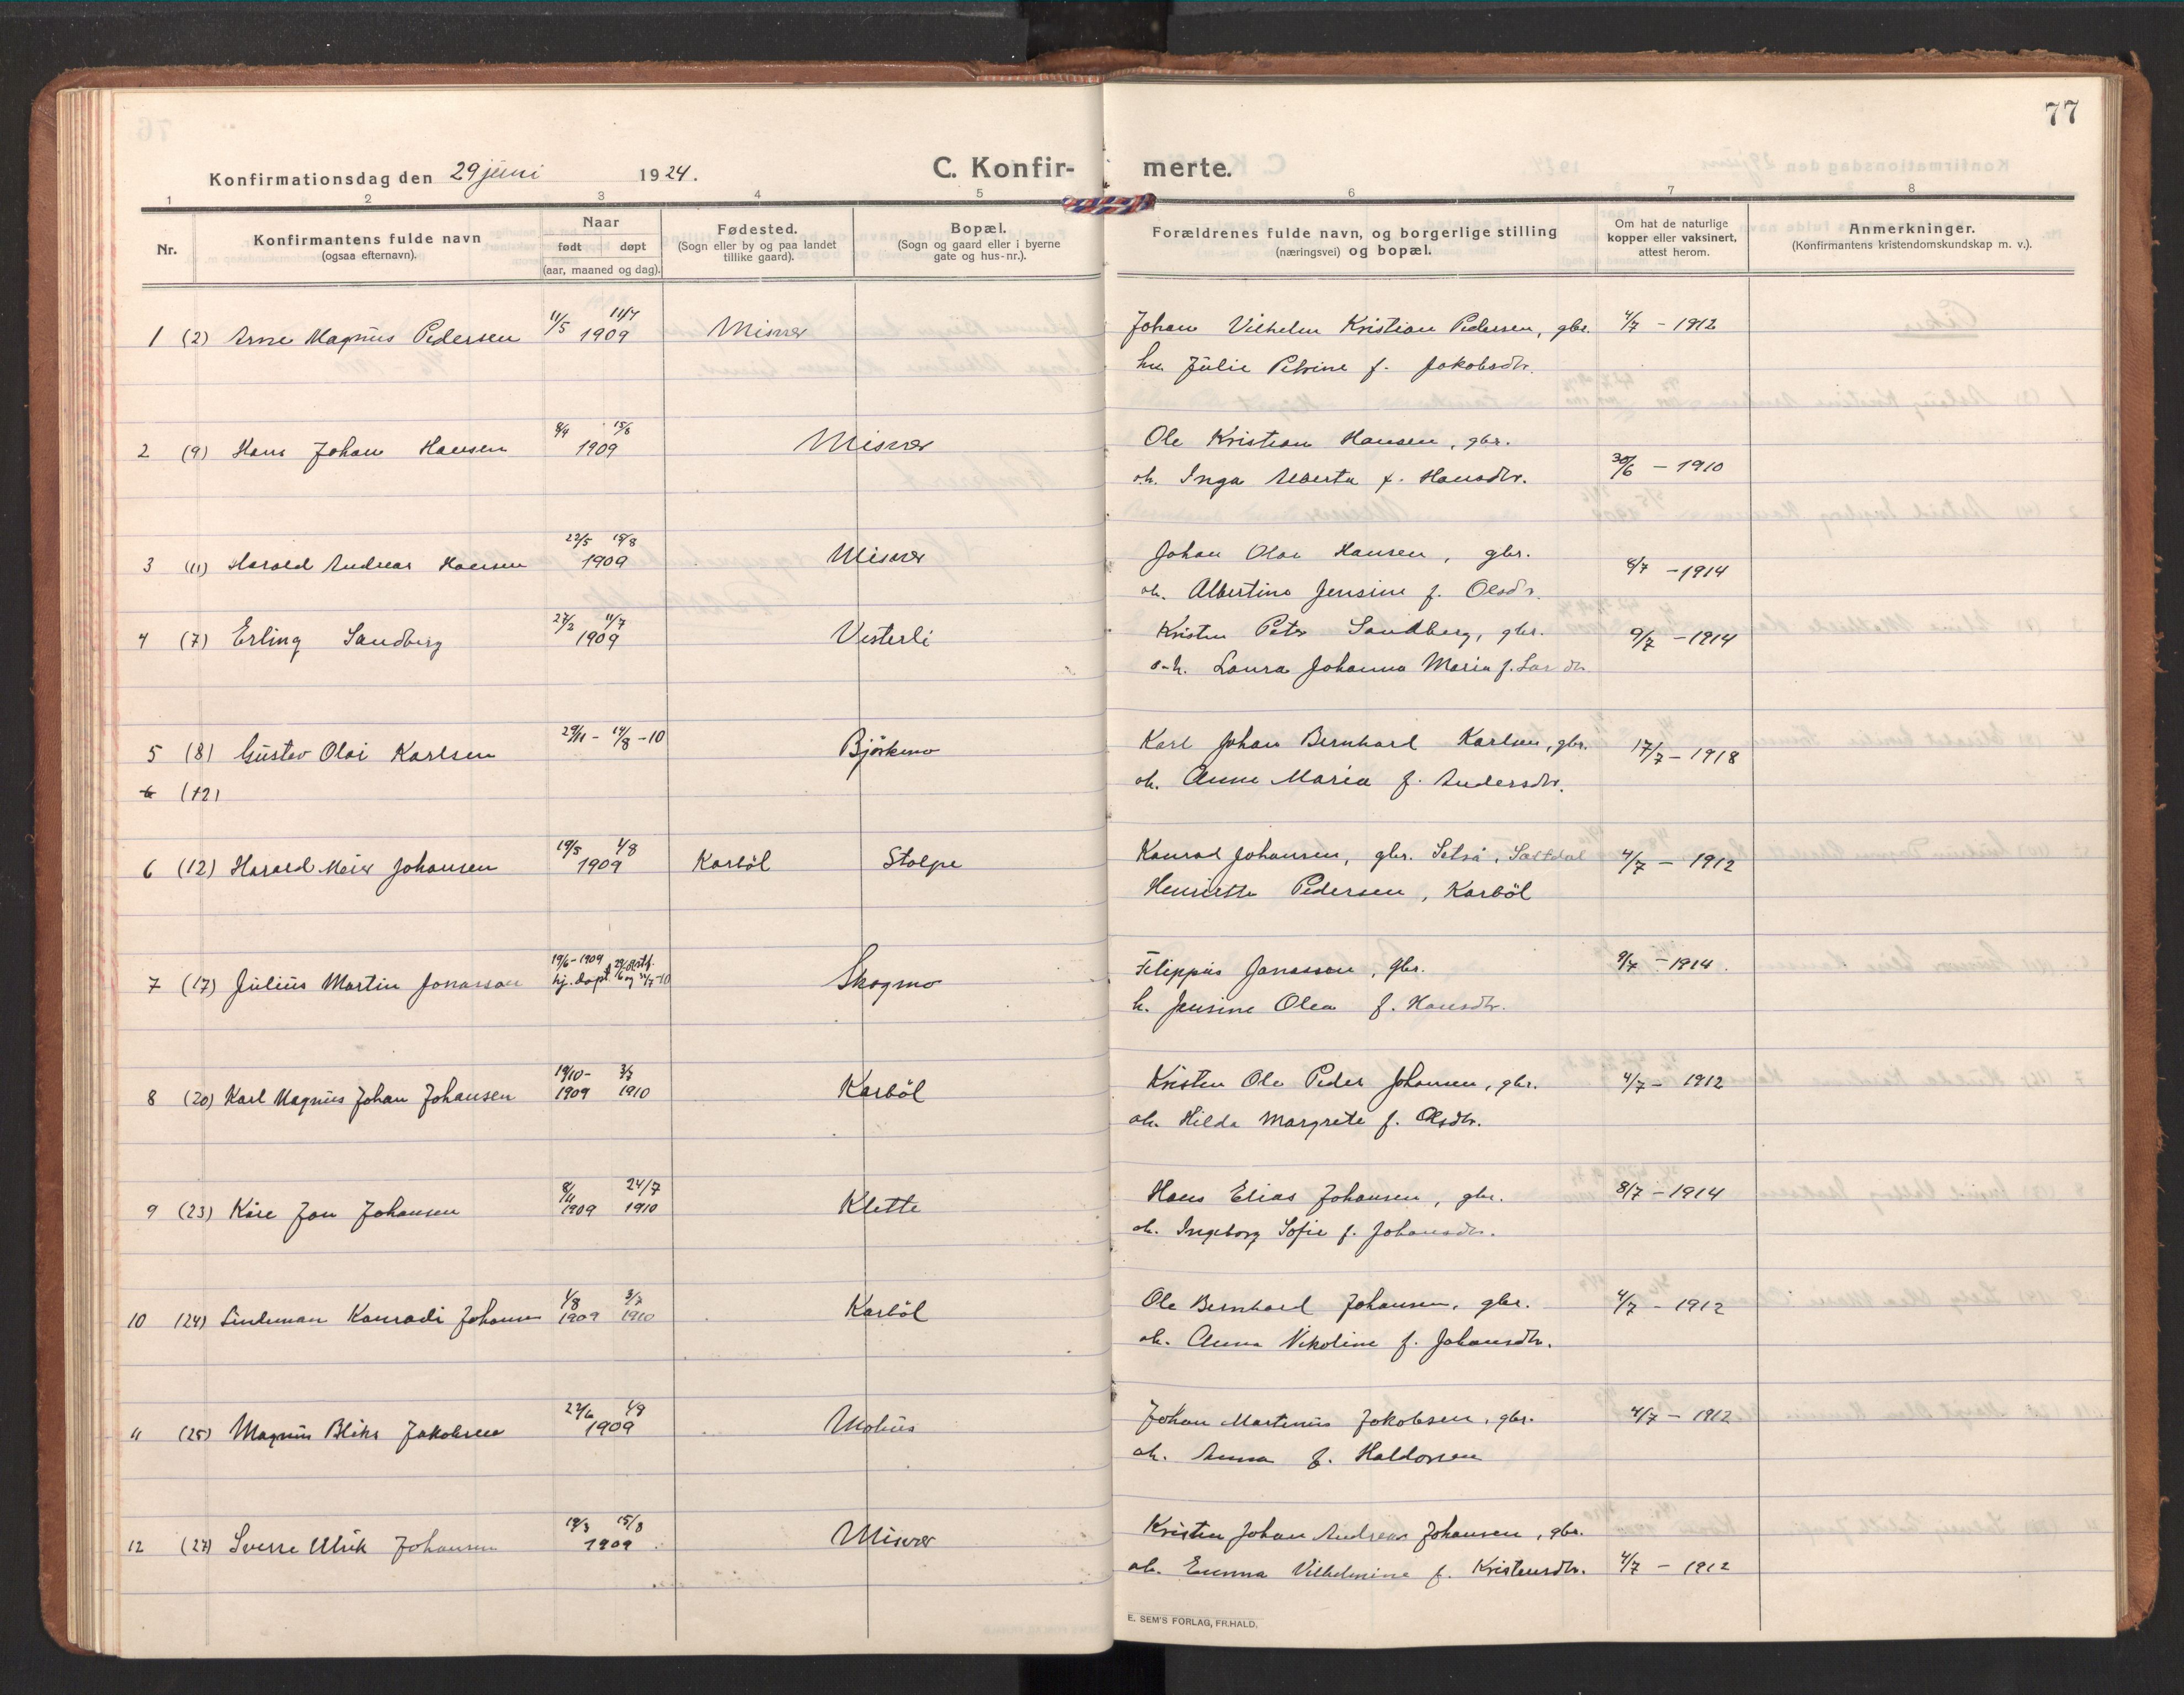 77
Konfirmationsdag den 29 juni 1924.
C. Konfirmerte.
1 2 3 4 5 6 7 8
Nr.
Konfirmantens fulde navn
(ogsaa efternavn).
Naar
født døpt
(aar, maaned og dag).
Fødested.
(Sogn eller by og paa landet
tillike gaard).
Bopæl.
(Sogn og gaard eller i byerne
gate og hus-nr.).
Forældrenes fulde navn, og borgerlige stilling
(næringsvei) og bopæl.
Om hat de naturlige
kopper eller vaksinert,
attest herom.
Anmerkninger.
(Konfirmantens kristendomskundskap m. v.).
1 (2) Arne Magnus Pedersen 11/5 11/7 1909 Misvær Johan Vilhelm Kristian Pedersen, gbr. 4/7 - 1912
hu. Julie Petrine f. Jakobsdtr.
2 (9) Hans Johan Hansen 8/4 15/8 1909 Misvær Ole Kristian Hansen, gbr.
o.h. Inga Alberta f. Hansdtr. 30/6 - 1910
3 (11) Harald Andreas Hansen 22/5 15/8 1909 Misvær Johan Olai Hansen, gbr. 8/7 - 1914
oh. Albertine Jensine f. Olsdtr.
4 (7) Erling Sandberg 27/2 11/7 1909 Vesterli Kristen Peter Sandberg, gbr. 9/7 - 1914
o.h. Laura Johanna Maria f. Larsdtr.
5 (8) Gustav Olai Karlsen 29/11 - 14/8 - 10 Björkmo Karl Johan Bernhard Karlsen, gbr. 17/7 - 1918
6 (12) oh. Anne Maria f. Andersdtr.
6 (12) Harald Meier Johansen 19/5 1/8 1909 Karböl Stolpe Konrad Johansen, gbr. Setså, Saltdal 4/7 - 1912
Henriette Pedersen, Karböl
7 (17) Julius Martin Jonassen 19/6 - 1909 hj. døpt Skogmo Filippus Jonassen, gbr. 9/7 - 1914.
h. Jensine Olea f. Hansdtr.
8 (20) Karl Magnus Johan Johansen 19/10 - 1909 3/7 1910 Karböl Kristen Ole Peder Johansen, gbr. 4/7 - 1912
oh. Hilda Margrete f. Olsdtr.
9 (23) Kåre Jon Johansen 8/11 1909 24/7 1910 Klette Hans Elias Johansen, gbr. 8/7 - 1914
oh. Ingeborg Sofie f. Johansdtr.
10 (24) Lindeman Konradi Johansen 1/8 1909 3/7 1910 Karböl Ole Bernhard Johansen, gbr. 4/7 - 1912
oh. Anna Nikoline f. Johansdtr.
11 (25) Magnus Bliks Jakobsen 22/6 1/8 1909 Mohus Johan Martinus Jakobsen, gbr. 4/7 - 1912
oh. Anna f. Haldorsen
12 (27) Sverre Ulrik Johansen 19/3 15/8 1909 Misvær Kristen Johan Andreas Johansen, gbr.
oh. Emma Vilhelmine f. Kristensdtr. 4/7 - 1912
E. SEM'S FORLAG, FR.HALD.